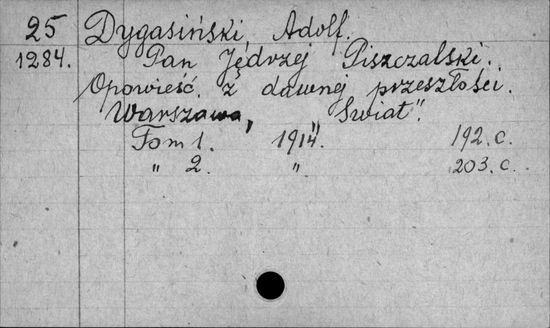 25 Dygasiński, Adolf.
1284. Pan Jędrzej Piszczalski.
Opowieść z dawnej przeszłości.
Warszawa, „Świat".
Tom 1. 1914. 192. c.
„ 2. „ 203. c.